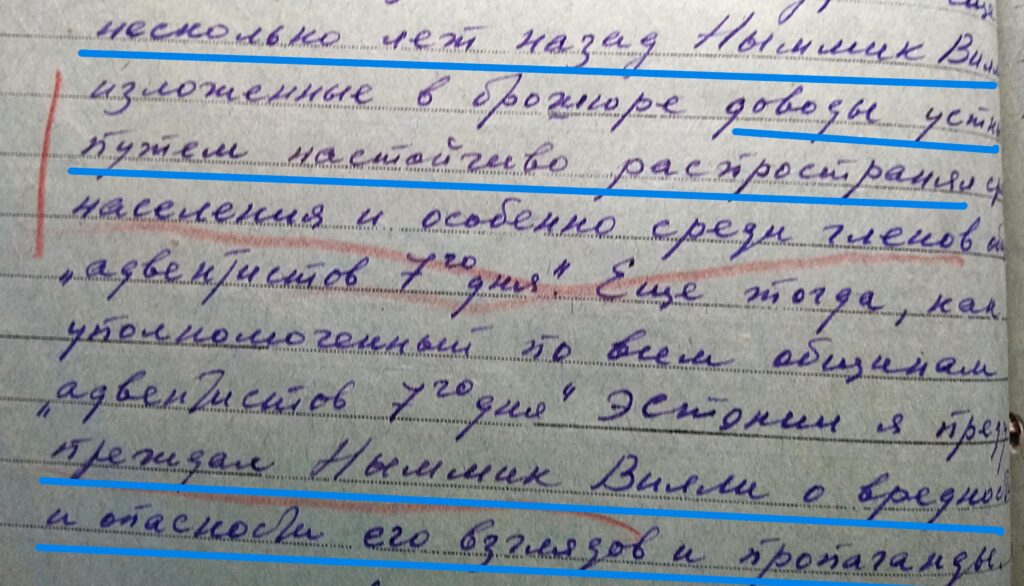 несколько лет назад Ныммик Вилл
изложенные в брошюре доводы устн
путем настойчиво распространял ср
населения и особенно среди членов
„адвентистов 7го дня". Еще тогда, как
уполномоченный по всем общинам
„адвентистов 7го дня" Эстонии я пред
преждал Ныммик Вилли о вреднос
и опасности его взглядов и пропаганды